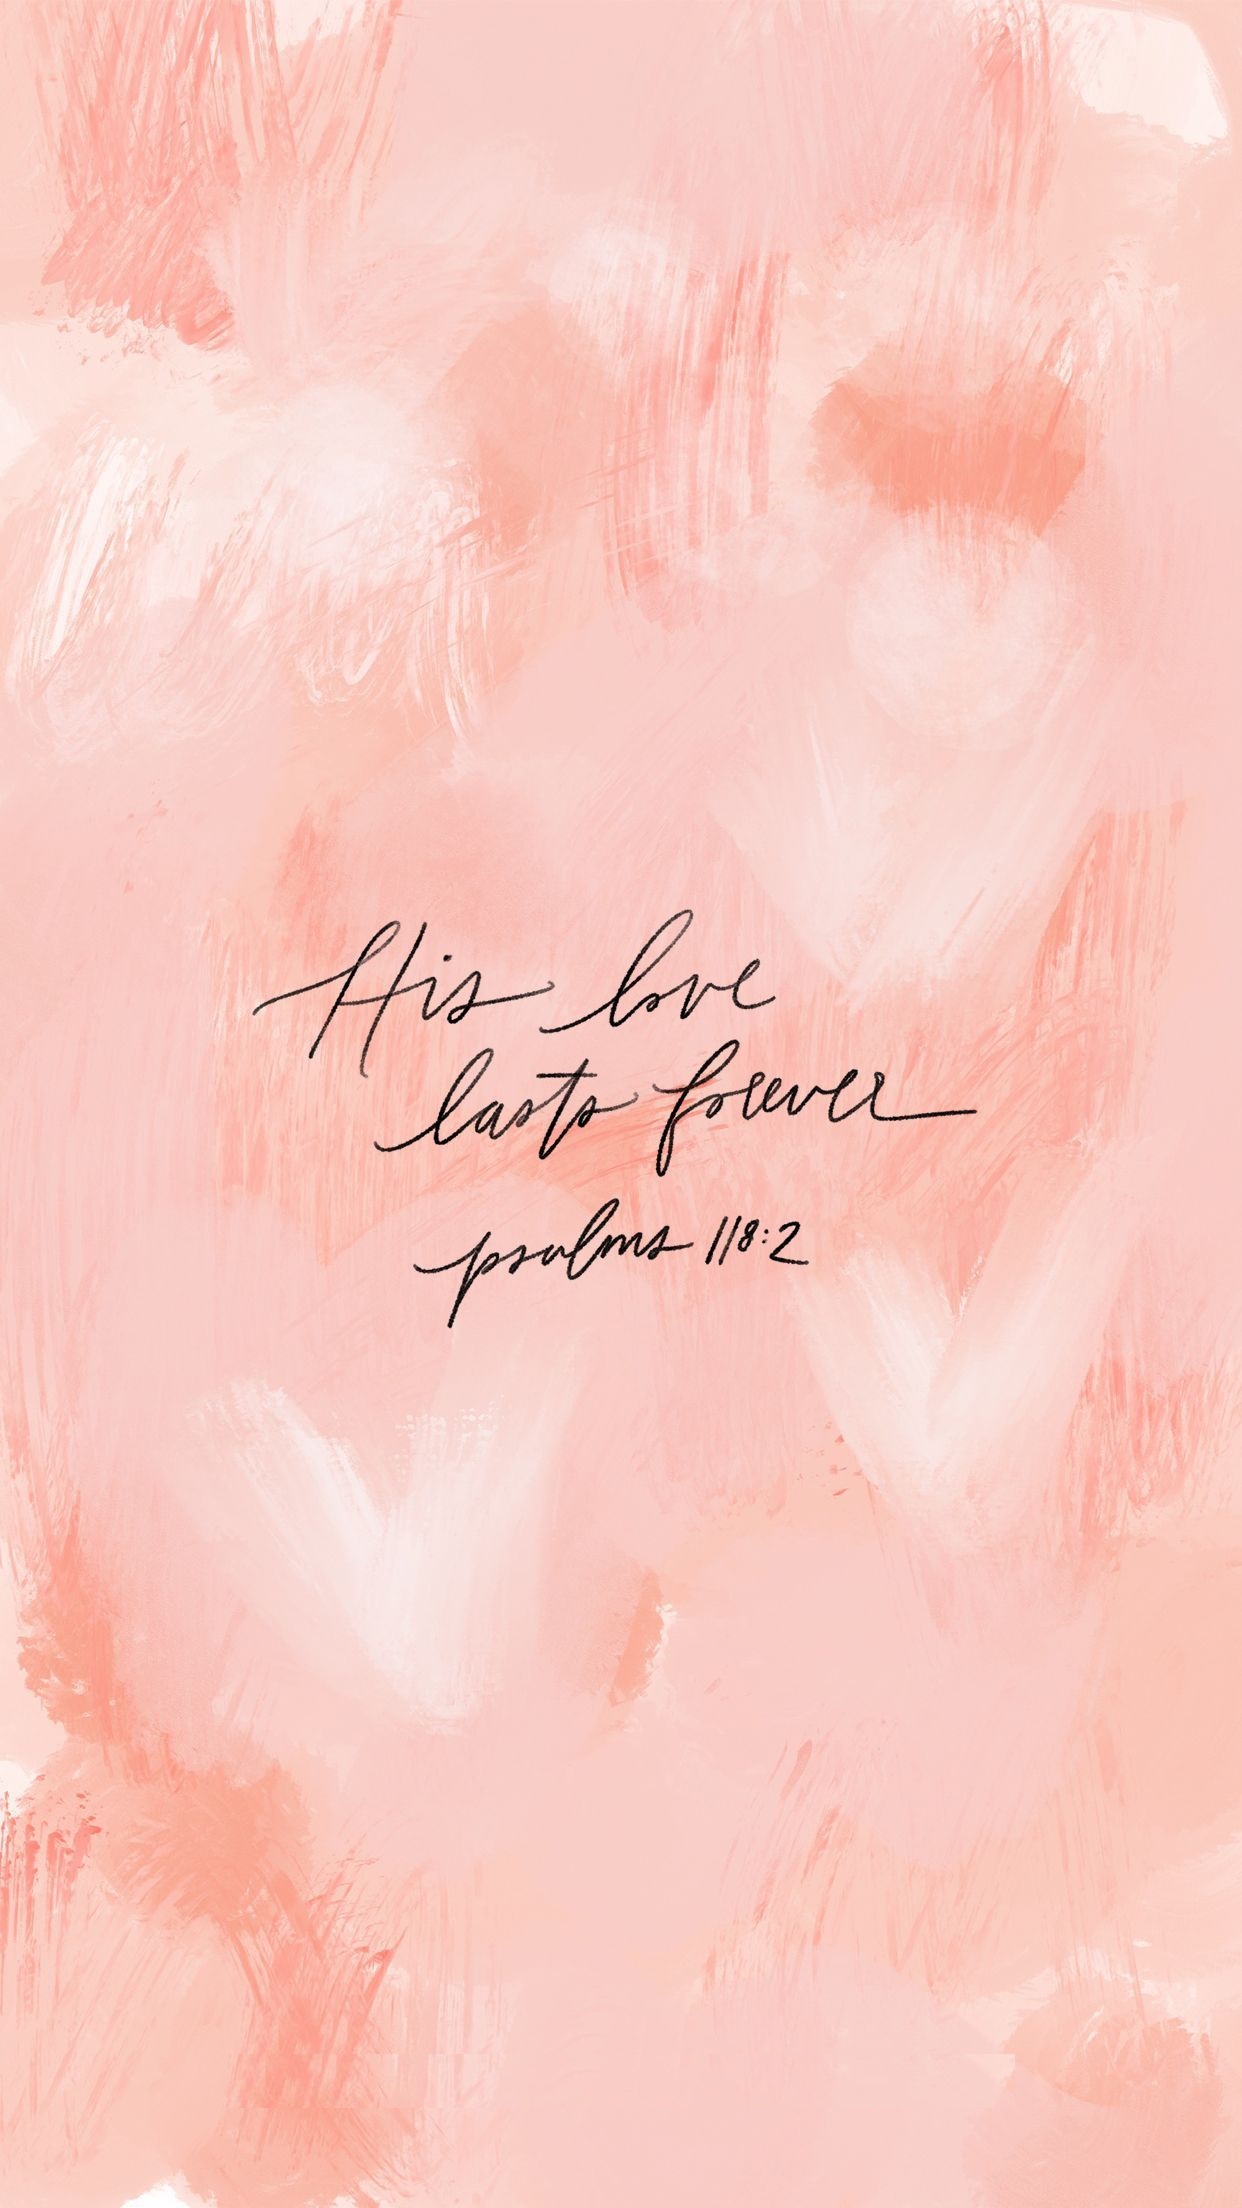 His love
lasts forever
psalms 118:2